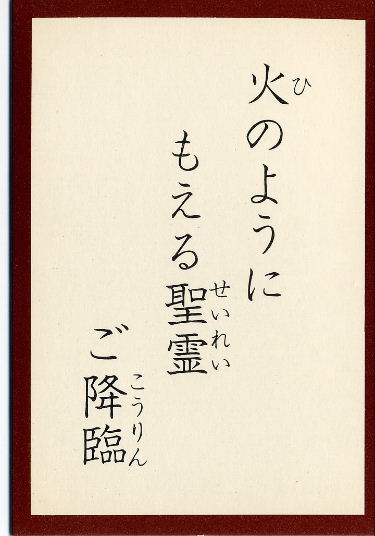 火のように
もえる聖霊
ご降臨
ひ
せいれい
こうりん